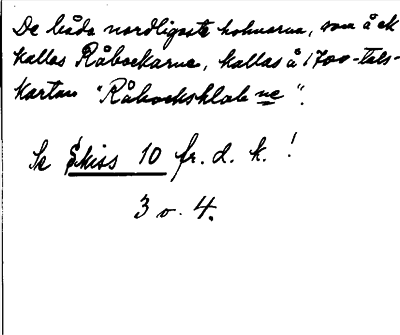 De båda nordligaste holmarna, som å ek
kallas Råbockarne, kallas å 1700-tals-
kartan "Råbocksklabne".
Se Skiss 10 fr. d. k. !
3 o. 4.